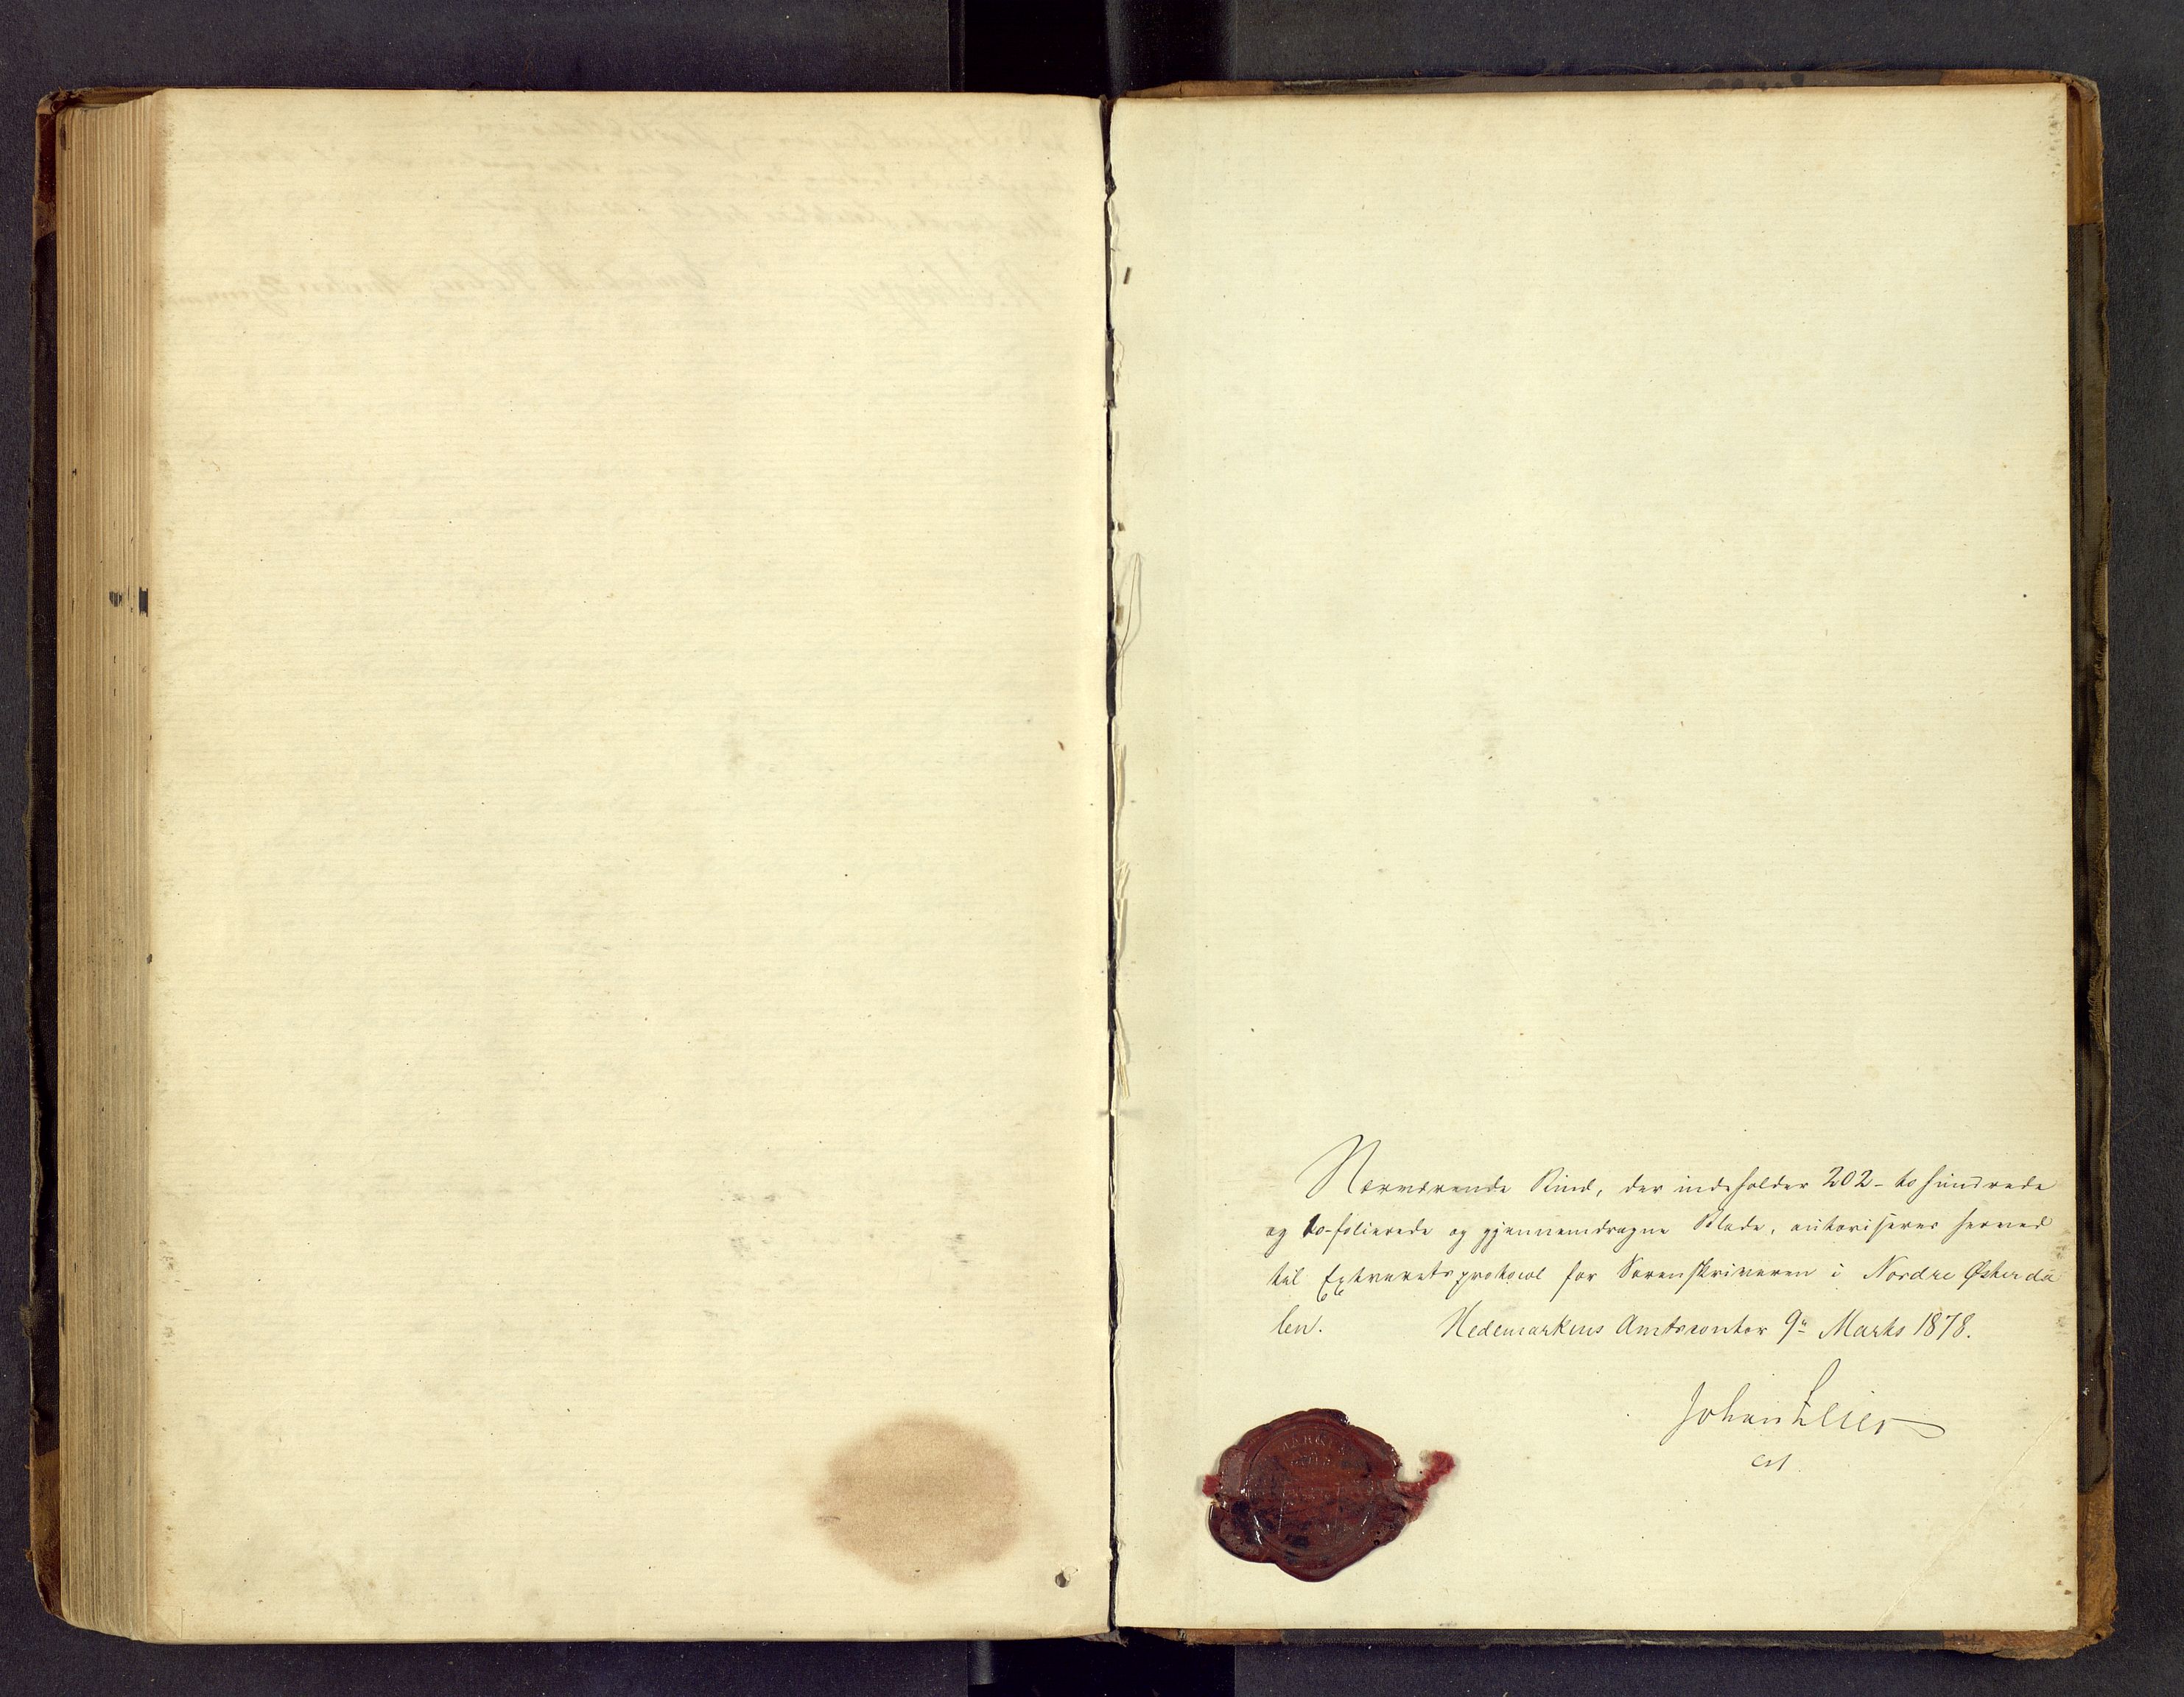 Nærværende Bind, der indeholder 202 - to hundrede
og to - folierede og gjennemdragne Blade, autoriseres herved
til Extraretsprotocol for Sorenskriveren i Nordre Østerda
len. Hedemarkens Amtscontor 9de Marts 1878.
Johan
cst.